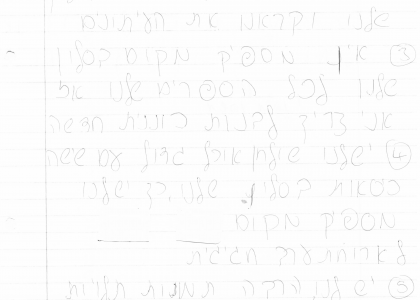 שלנו וקראנו את העיתונים
③ אין מספיק מקום בסלון
שלנו לכל הספרים שלנו אז
אני צריך לבנות כוננית חדשה
④ יש לנו שולחן אוכל גדול עם שישה
כיסאות בסלון שלנו, כך יש לנו
מספיק מקום
לארוחת ערב חגיגית
⑤ יש לנו הרבה תמונות תלויות